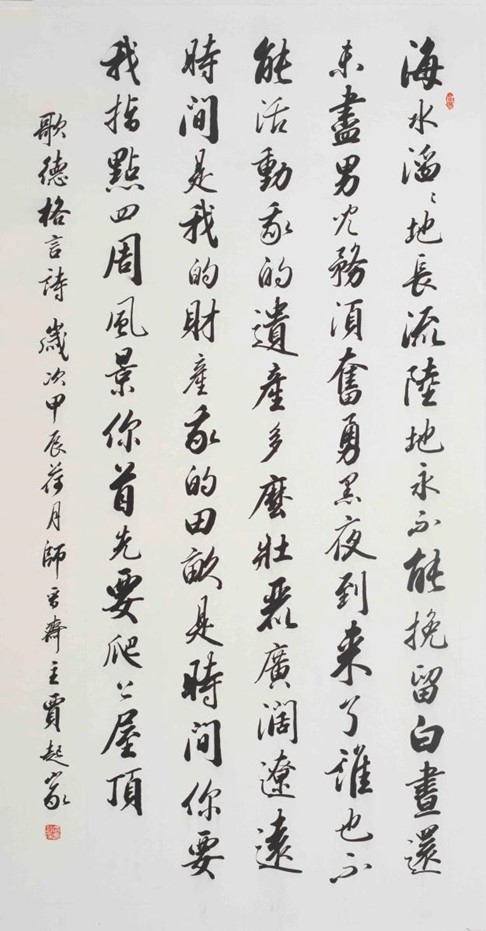 海水滔〻地長流陸地永不能挽留白晝還
未盡男兒務須奮勇黑夜到來了誰也不
能活動我的遺產多麼壯麗廣闊遼遠
時間是我的財產我的田畝是時間你要
我指點四周風景你首先要爬上屋頂
歌德格言詩 歲次甲辰荷月師晉齋主賈起家